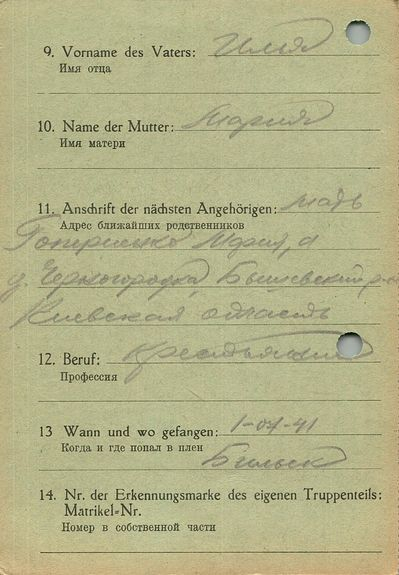 9. Vorname des Vaters: Илья
Имя отца
10. Name der Mutter: Мария
Имя матери
11. Anschrift der nächsten Angehörigen: Мать
Адрес ближайших родственников
Мария,
д. Черногородка, Бышевский р-н
Киевская область
12. Beruf: крестьянин
Профессия
13 Wann und wo gefangen: 1-07-41
Когда и где попал в плен
Бельск
14. Nr. der Erkennungsmarke des eigenen Truppenteils:
Matrikel=Nr.
Номер в собственной части